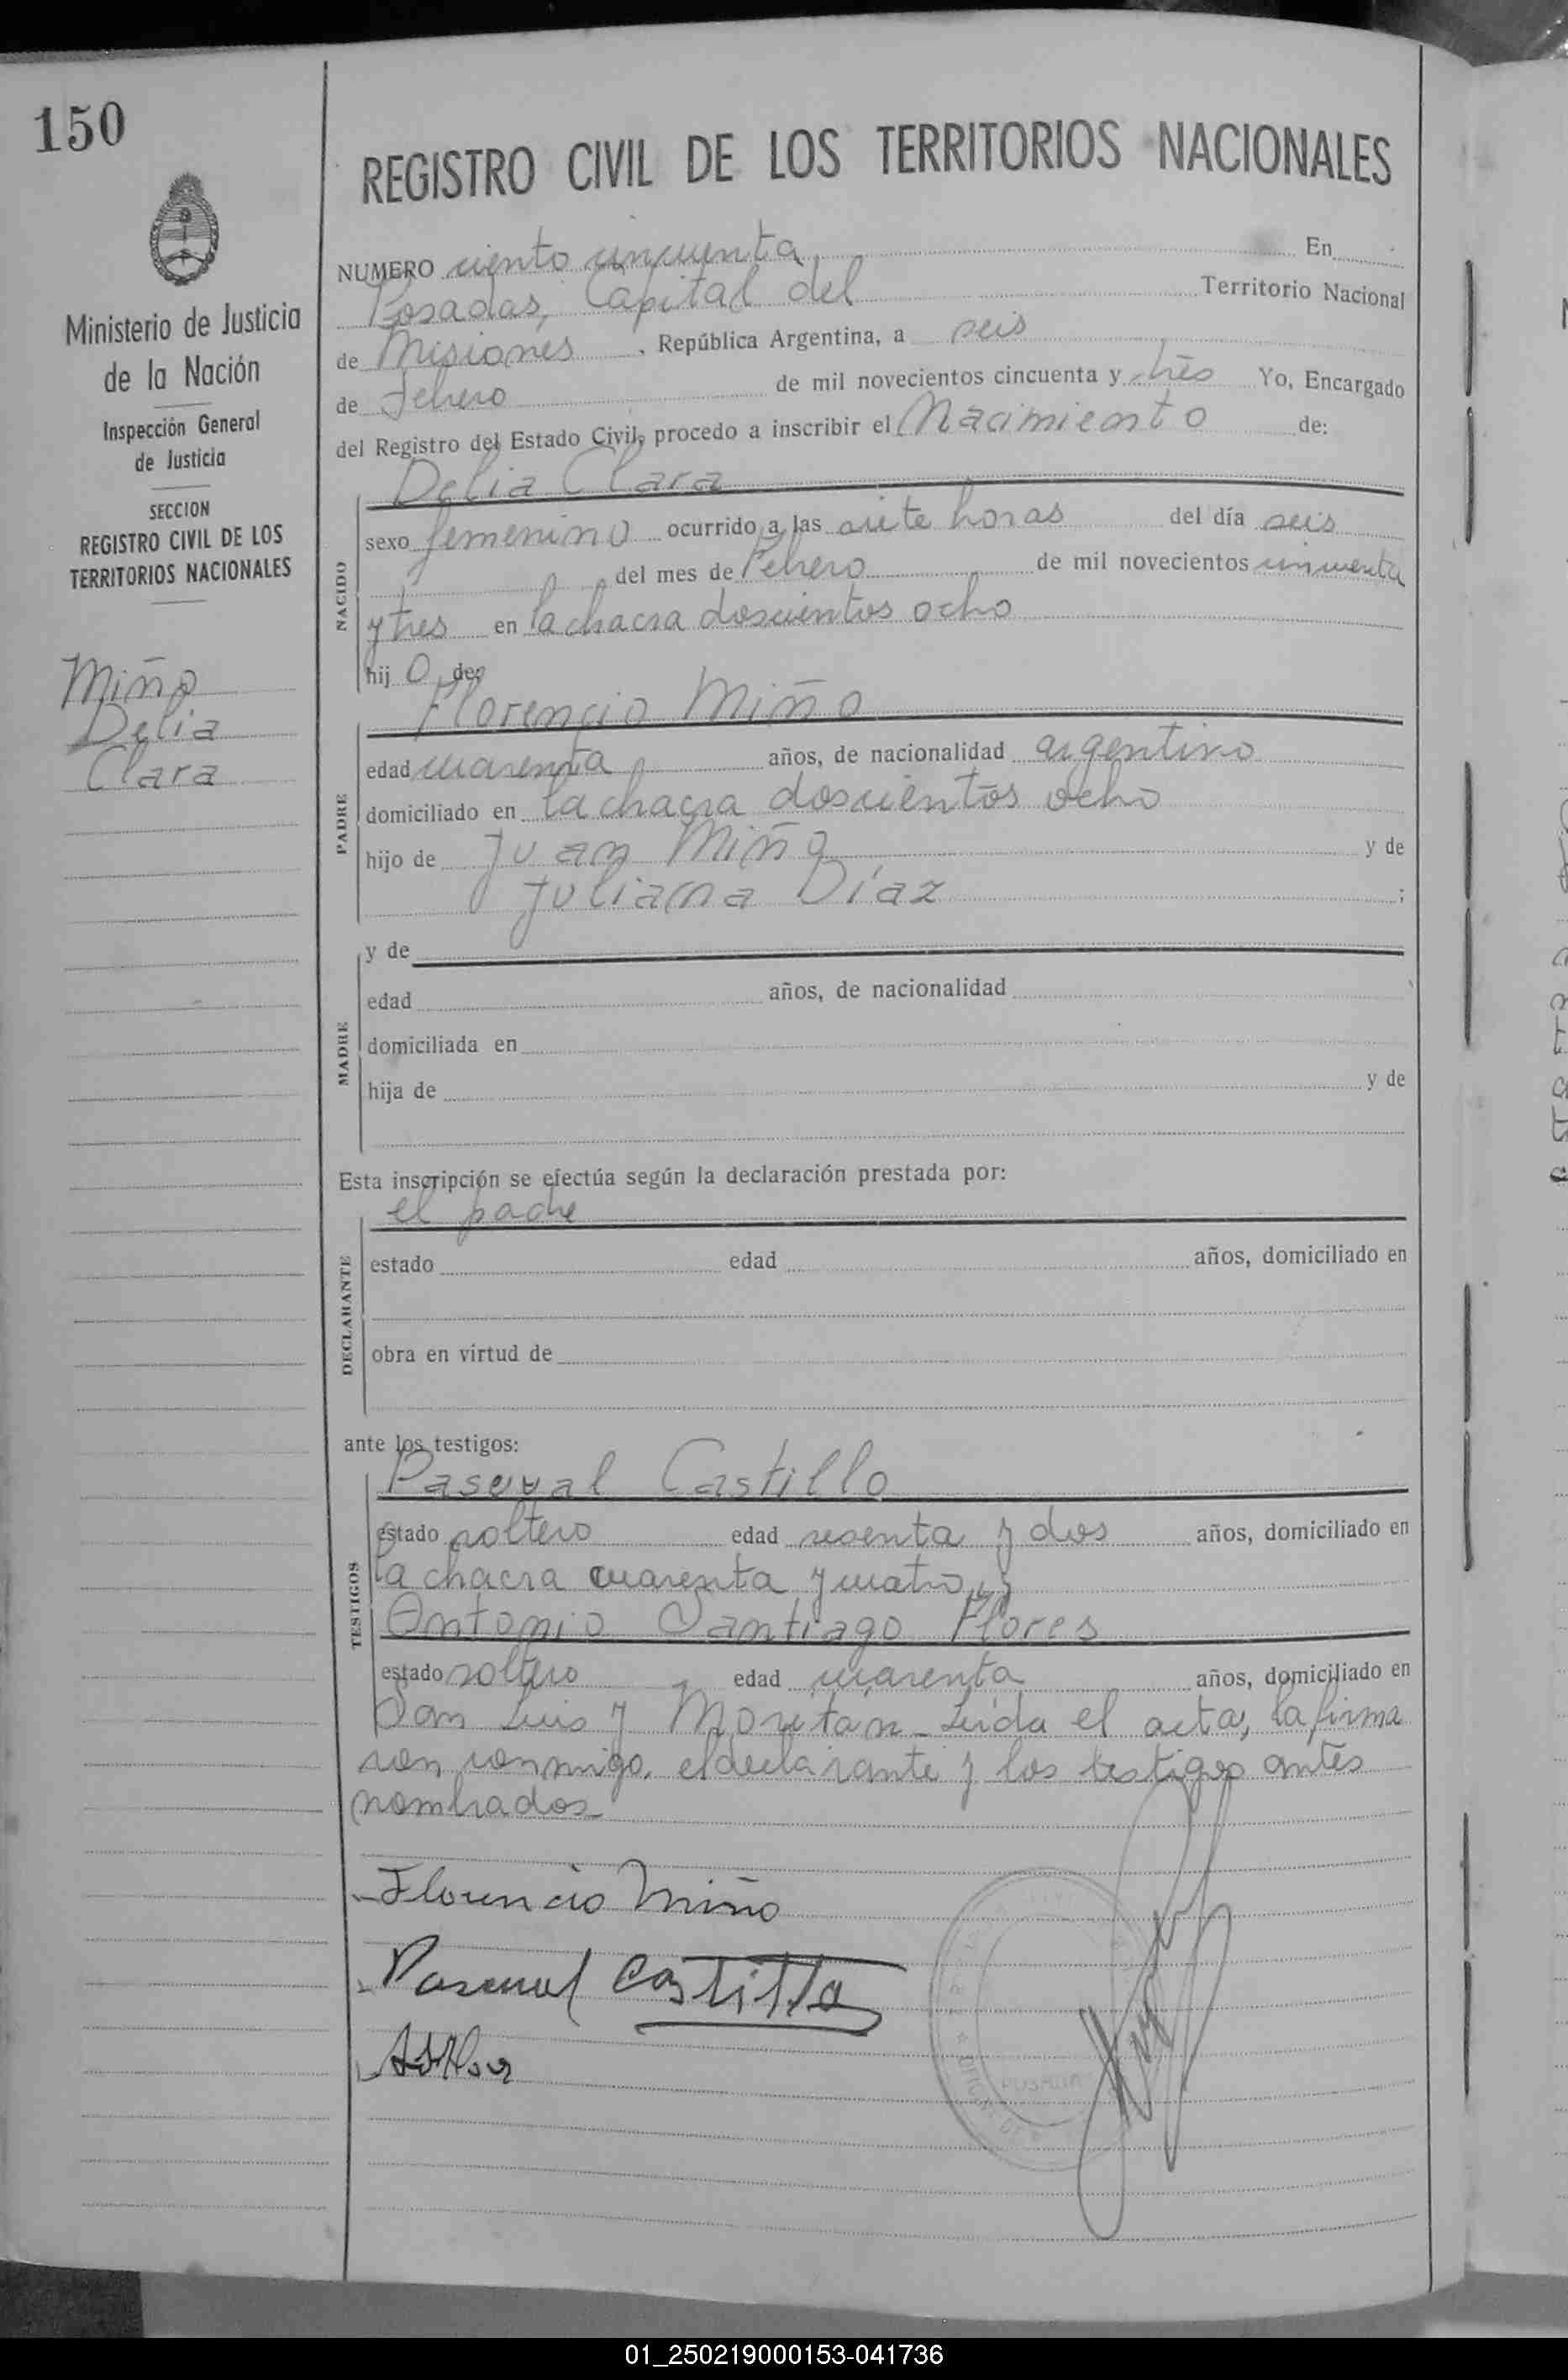 150
REGISTRO CIVIL DE LOS TERRITORIOS NACIONALES
Ministerio de Justicia
de la Nación
Inspección General
de Justicia
SECCION
REGISTRO CIVIL DE LOS
TERRITORIOS NACIONALES
Miño
Delia
Clara
NUMERO ciento cincuenta En
Posadas, Capital del Territorio Nacional
de Misiones, República Argentina, a seis
de Febrero de mil novecientos cincuenta y trés Yo, Encargado
del Registro del Estado Civil, procedo a inscribir el Nacimiento de:
NACIDO
Delia Clara
sexo femenino ocurrido a las siete horas del día seis
del mes de Febrero de mil novecientos cincuenta
y tres en la chacra doscientos ocho
hij o de:
PADRE
Florencio Miño
edad cuarenta años, de nacionalidad argentino
domiciliado en la chacra doscientos ocho
hijo de Juan Miño y de
Juliana Díaz ;
MADRE
y de
edad años, de nacionalidad
domiciliada en
hija de y de
Esta inscripción se efectúa según la declaración prestada por:
DECLARANTE
el padre
estado edad años, domiciliado en
obra en virtud de
ante los testigos:
TESTIGOS
Pascual Castillo
estado soltero edad sesenta y dos años, domiciliado en
la chacra cuarenta y cuatro, y
Antonio Santiago Flores
estado soltero edad cuarenta años, domiciliado en
San Luis y Moritán_ Leída el acta, la firma
ron conmigo, el declarante y los testigos antes
nombrados_
Florencio Miño
Pascual Castillo
POSADAS
01_250219000153-041736